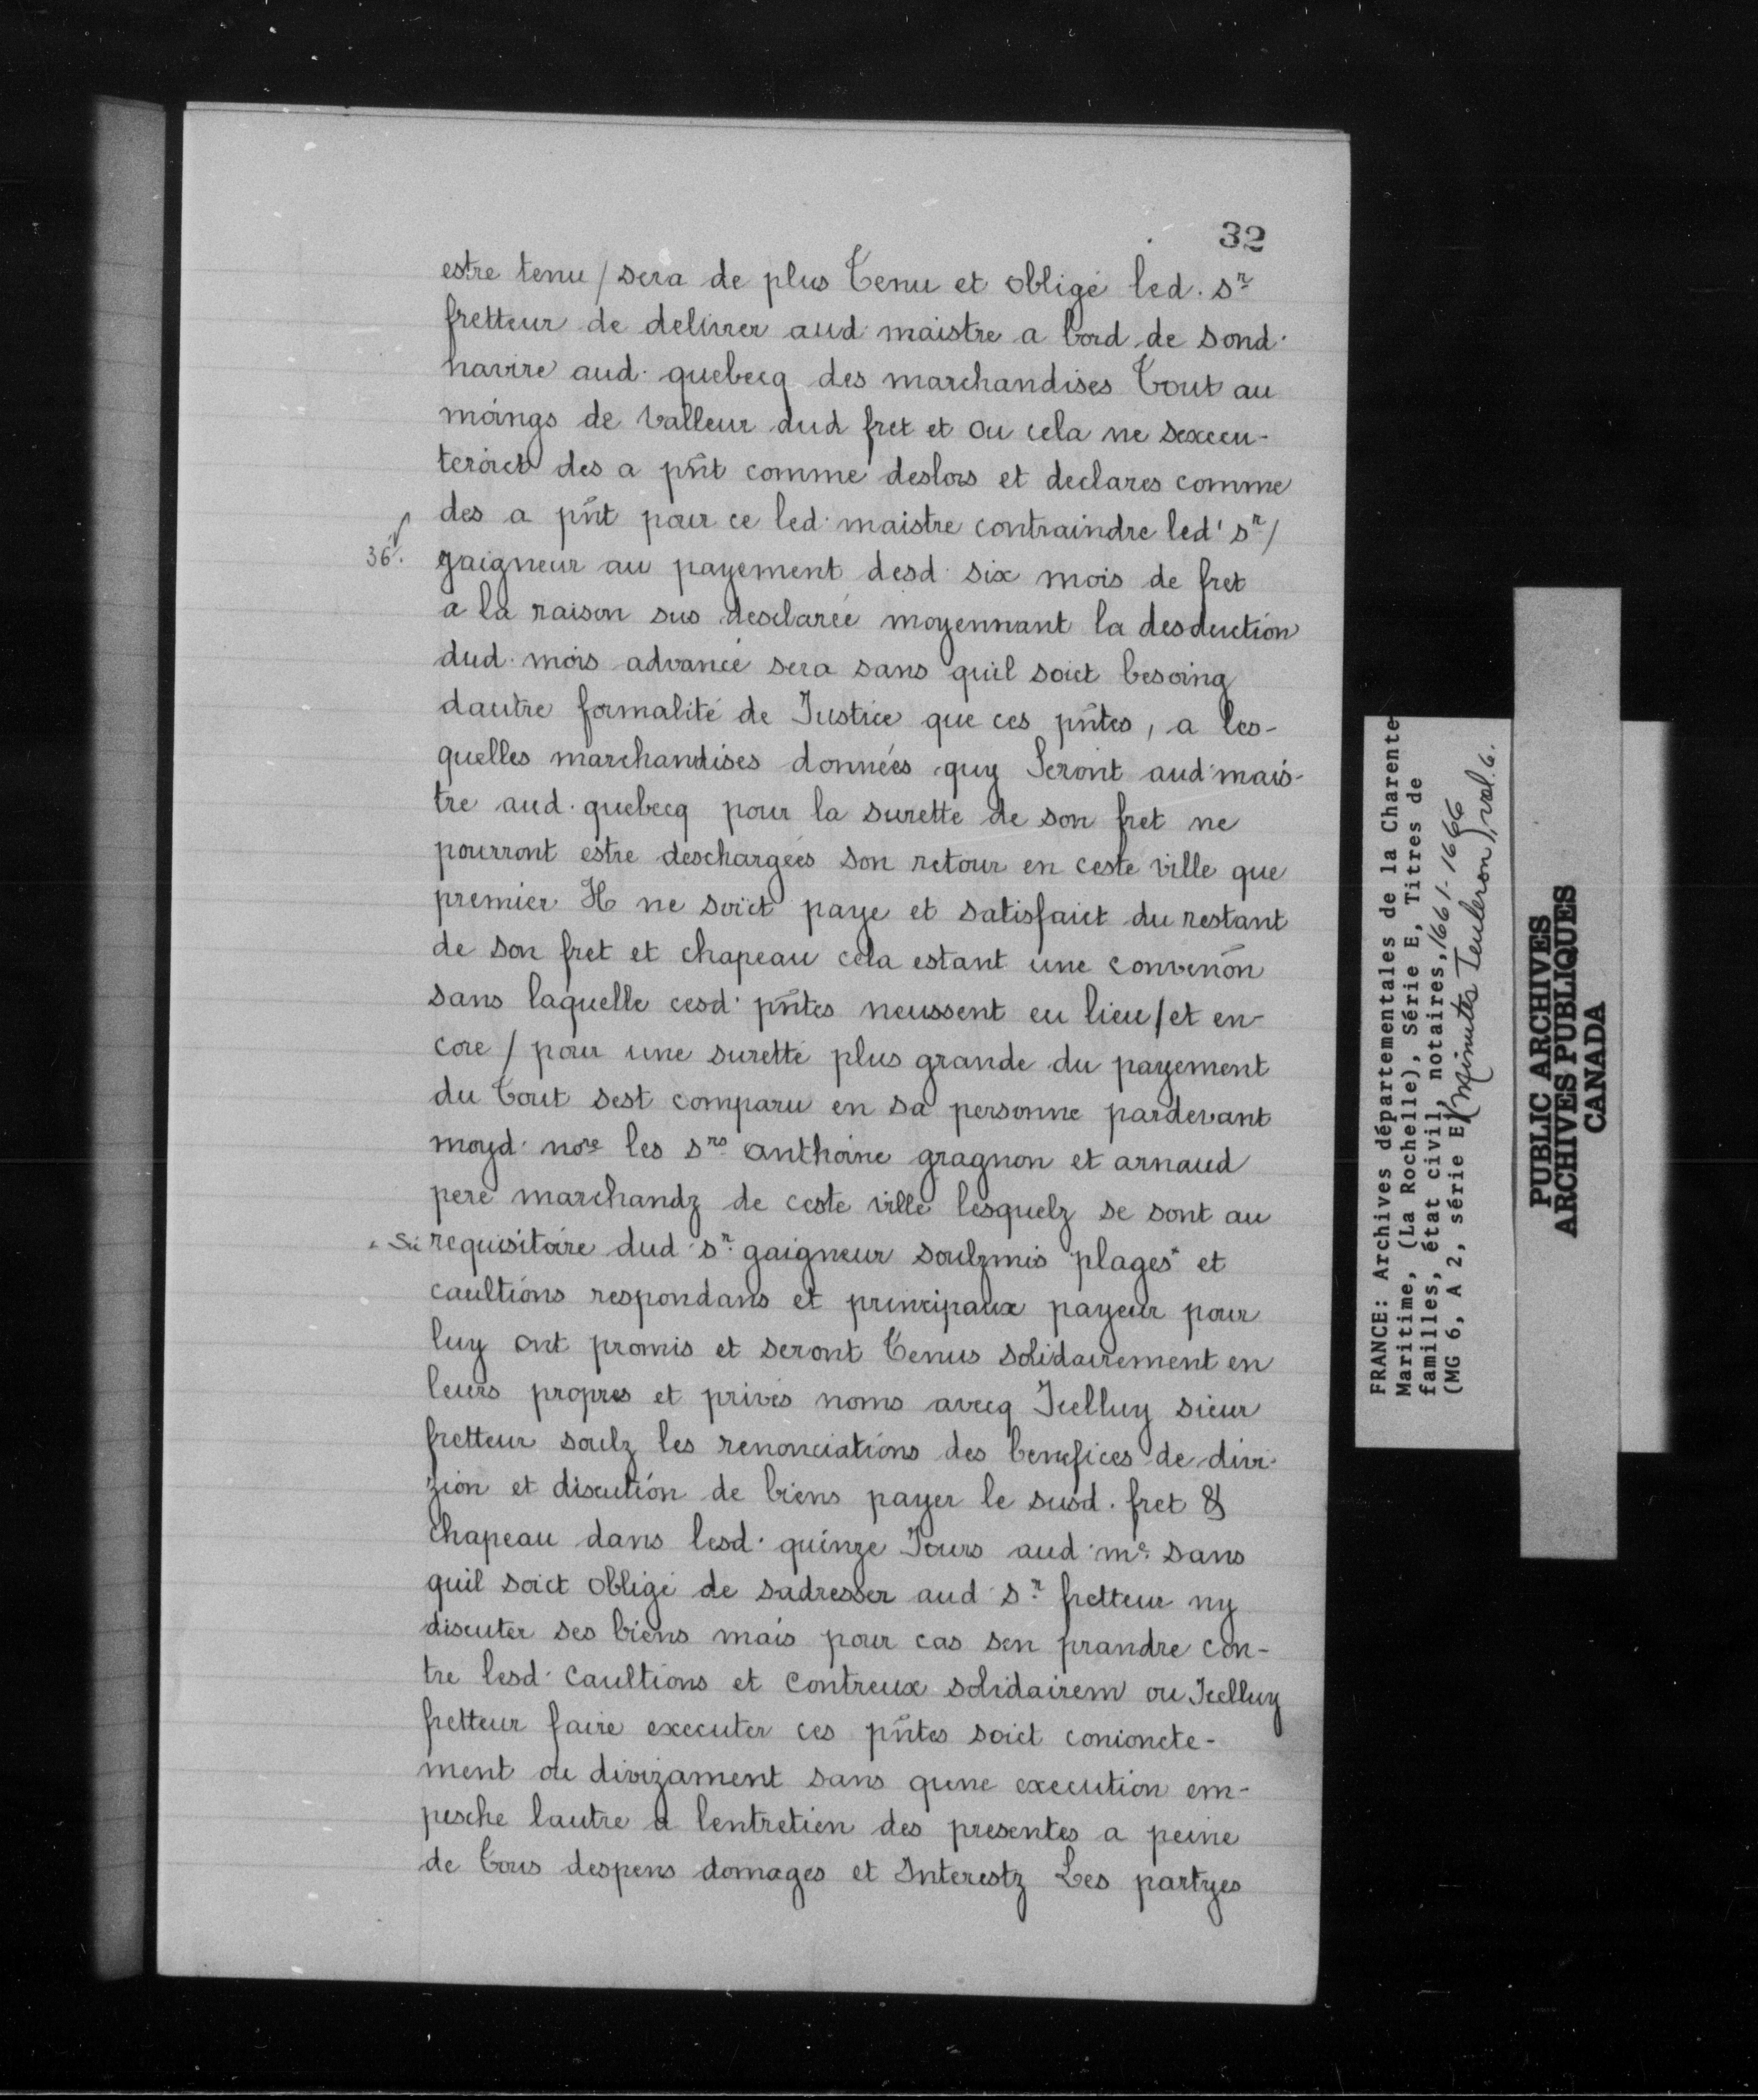 32
estre tenu / sera de plus Tenu et obligé led. sr
fretteur de delivrer aud. maistre a bord de sond.
navire aud. quebecq des marchandises Tout au
moings de valleur dud fret et ou cela ne sexecu-
teroict des a pñt comme deslors et declares comme
des a pñt pour ce led. maistre contraindre led' sr /
36v. gaigneur au payement desd. six mois de fret
a la raison sus desclarée moyennant la desduction
dud. mois advancé sera sans quil soict besoing
dautre formalité de Justice que ces pñtes, a les-
quelles marchandises données quy Seront aud. mais-
tre aud. quebecq pour la surette de son fret ne
pourront estre deschargées son retour en ceste ville que
premier Il ne soict paye et satisfaict du restant
de son fret et chapeau cela estant une convenõn
sans laquelle cesd. pñtes neussent eu lieu / et en-
core / pour une suretté plus grande du payement
du Tout sest comparu en sa personne pardevant
moyd. nore les srs anthoine gragnon et arnaud
peré marchandz de ceste ville lesquelz se sont au
x Sic requisitoire dud. sr. gaigneur soulzmis plages x et
caultions respondans et principaux payeur pour
luy ont promis et seront Tenus solidairement en
leurs propres et privés noms avecq Icelluy sieur
fretteur soulz les renonciations des benefices de divi-
zion et discution de biens payer le susd. fret &
chapeau dans lesd. quinze Jours aud. me. sans
quil soict obligé de sadresser aud. sr. fretteur ny
discuter ses biens mais pour cas sen prandre con-
tre lesd. caultions et contreux solidairem ou Icelluy
fretteur faire executer ces pñtes soict conioncte-
ment ou divizament sans qune execution em-
pesche lautre a lentretien des presentes a peine
de Tous despens domages et Interestz Les partyes
FRANCE: Archives départementales de la Charente
Maritime, (La Rochelle), Série E, Titres de
familles, état civil, notaires, 1661-1666
(MG 6, A 2, série E (Minutes Teuleron), vol. 6.
PUBLIC ARCHIVES
ARCHIVES PUBLIQUES
CANADA